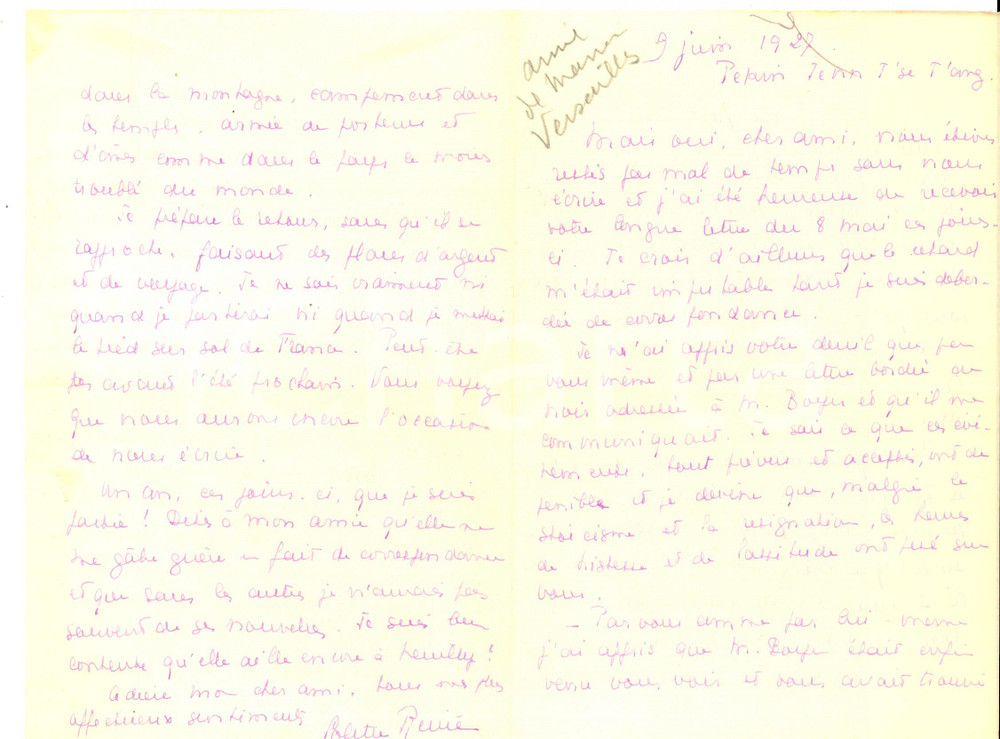 9 juin 1927.
Pékin Tenn T'se T'ang.
amie
de Maman
Versailles
Mais oui, cher ami, nous étions
restés pas mal de temps sans nous
écrire et j'ai été heureuse de recevoir
votre longue lettre du 8 mai ces jours-
ci. Je crois d'ailleurs que le retard
m'était imputable tant je suis débor-
dée de correspondance.
Je n'ai appris votre deuil que par
vous même et par une lettre bordée de
noir adressée à M. Boyer et qu'il me
communiquait. Je sais ce que ces évé-
nements, tout prévus et acceptés, ont de
pénible et je devine que, malgré le
stoïcisme et la résignation, les heures
de tristesse et de lassitude ont pesé sur
vous.
— Par vous comme par lui-même
j'ai appris que M. Boyer était enfin
venu vous voir et vous avait trouvé
dans la montagne, campement dans
les temples, armée de porteurs et
d'ânes comme dans le pays le moins
troublé du monde.
Je prépare le retour, sans qu'il se
rapproche, faisant des plans d'argent
et de voyage. Je ne sais vraiment ni
quand je partirai ni quand je mettrai
le pied sur sol de France. Peut-être
pas avant l'été prochain. Vous voyez
que nous aurons encore l'occasion
de nous écrire.
Un an, ces jours-ci, que je suis
partie ! Dites à mon amie qu'elle ne
me gâte guère en fait de correspondance
et que sans les autres je n'aurais pas
souvent de ses nouvelles. Je suis bien
contente qu'elle aille encore à Neuilly !
Adieu mon cher ami, tous nos plus
affectueux sentiments